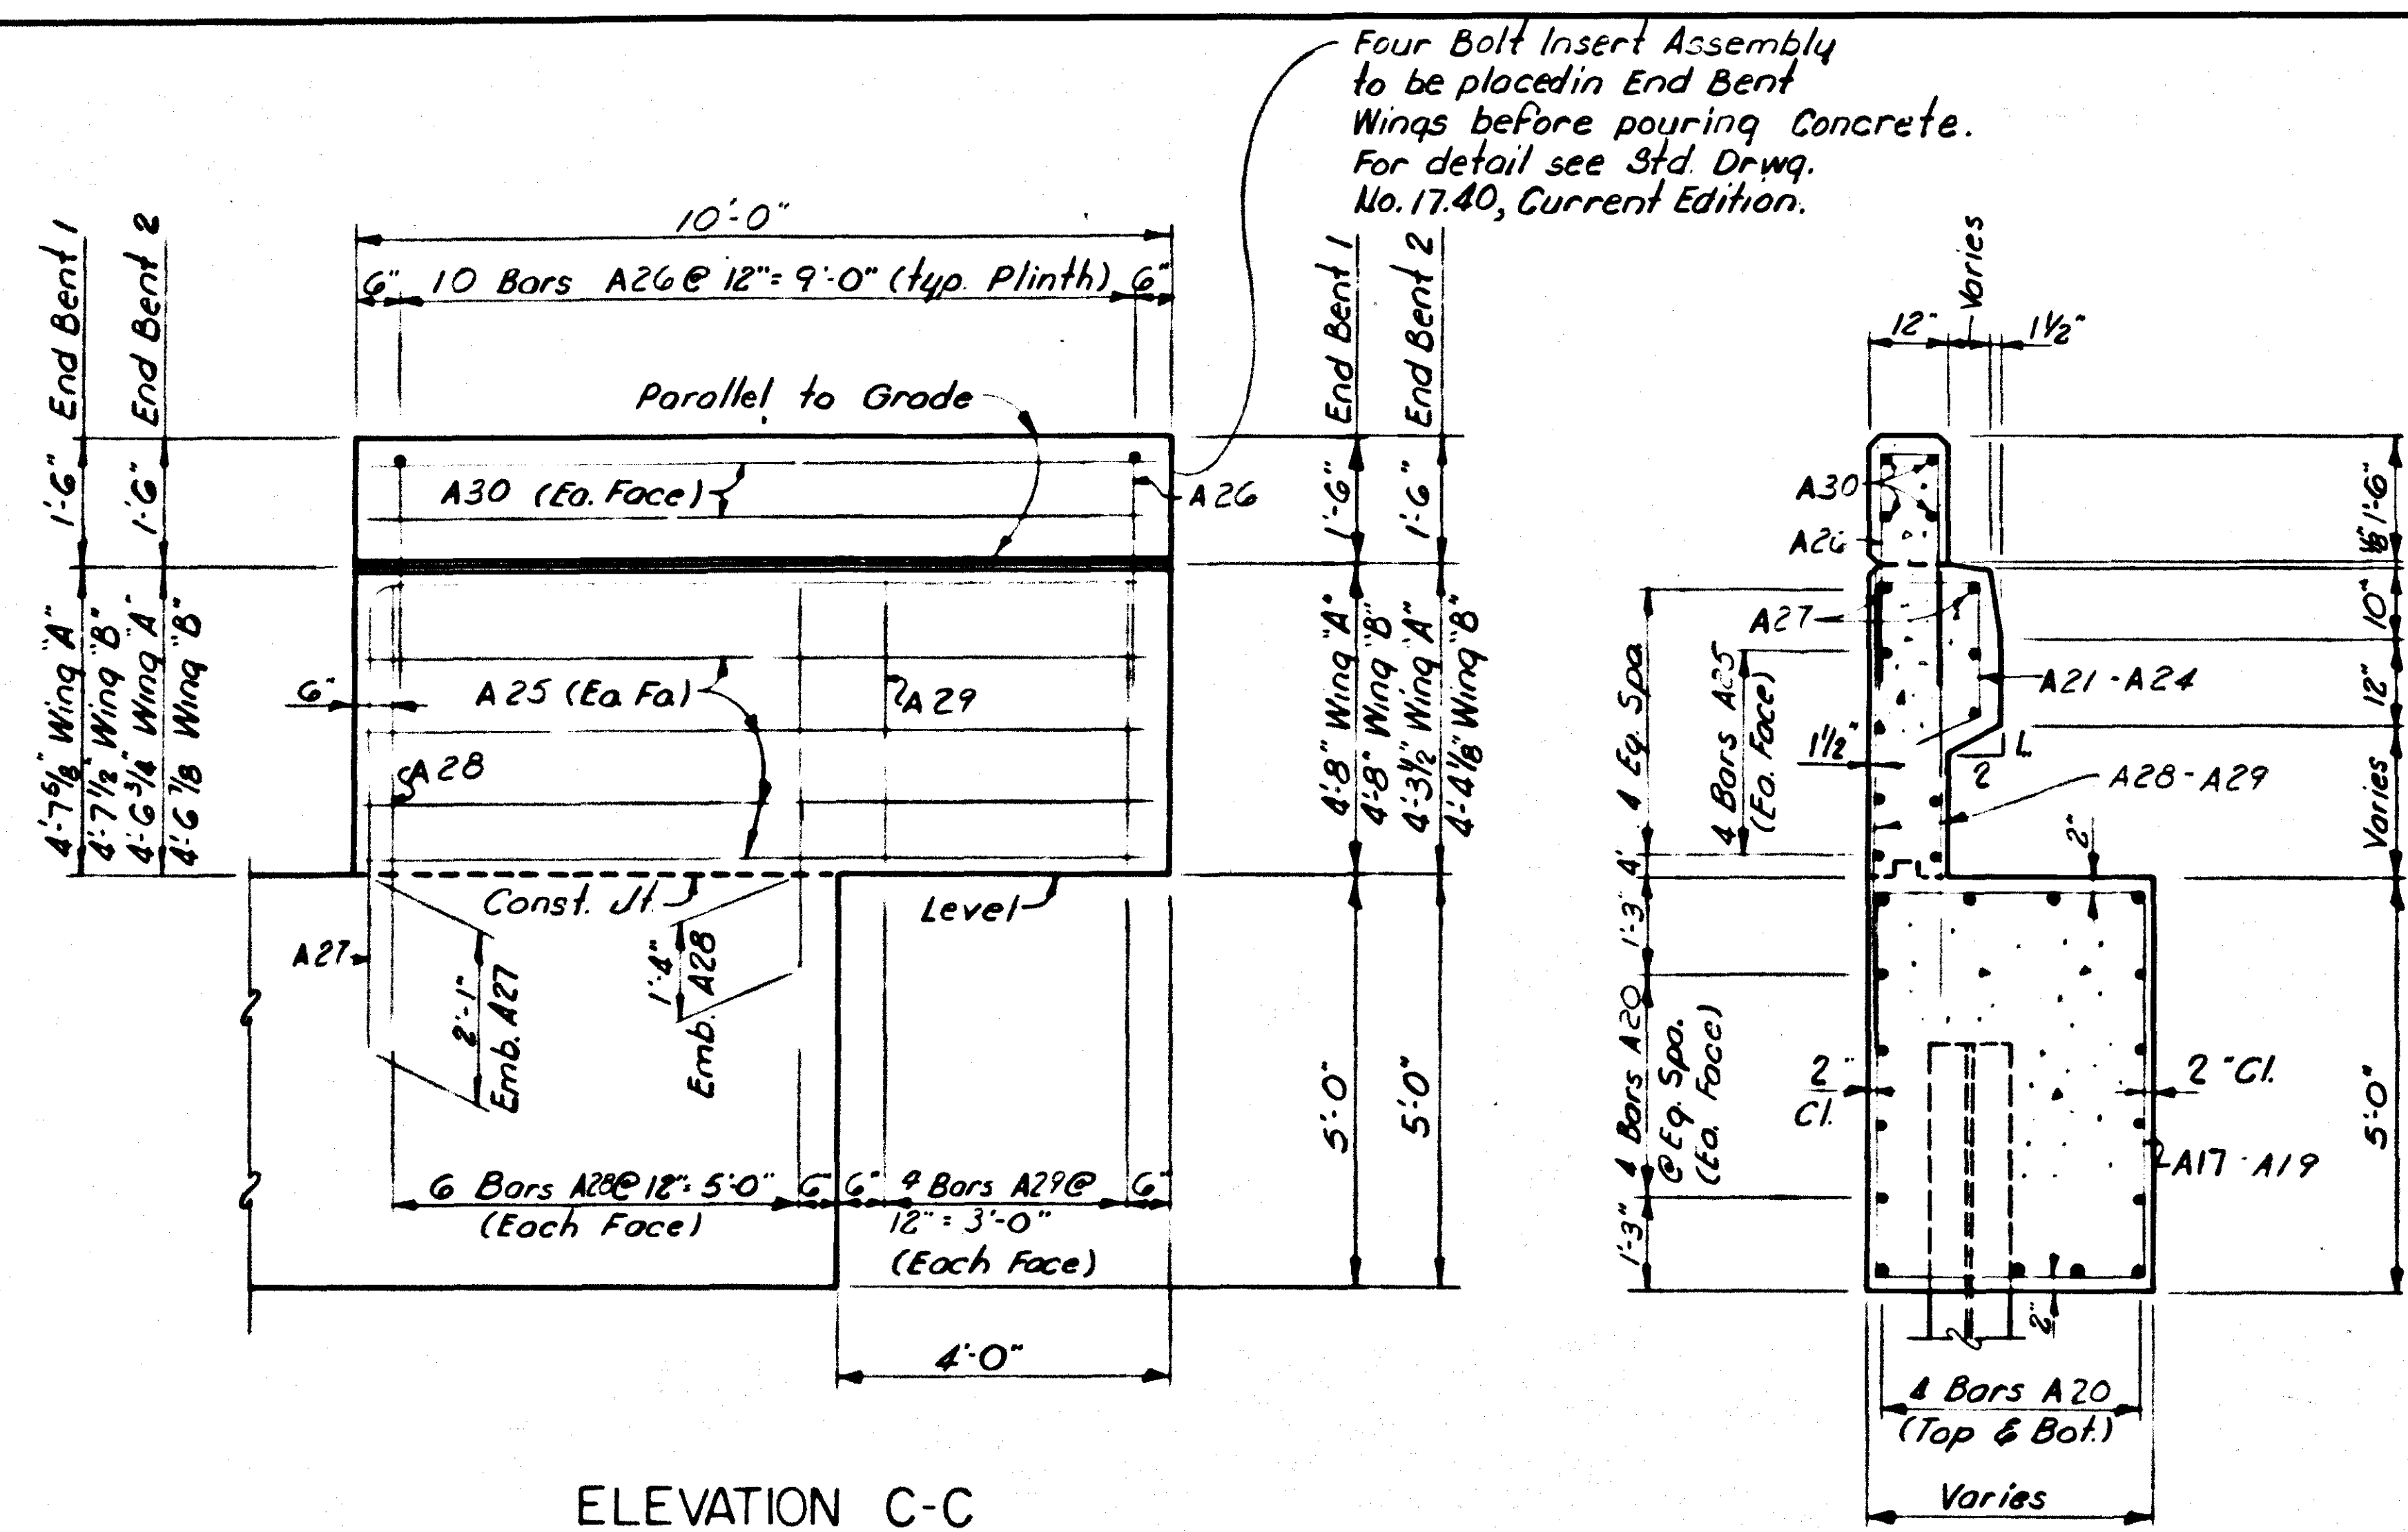 Four Bolt Insert Assembly
to be placedin End Bent
Wings before pouring Concrete.
For detail see Std. Drwg.
No. 17.40, Current Edition.
10'-0"
6" 10 Bars A26 @ 12" = 9'-0" (typ. Plinth) 6"
1'-6" End Bent 1
1'-6" End Bent 2
4'-7 5/8" Wing "A"
4'-7 1/2" Wing "B"
4'-6 3/4" Wing "A"
4'-6 7/8 Wing "B"
Parallel to Grade
A30 (Ea. Face)
A26
6"
A25 (Ea Fa)
A29
A28
Const. Jt.
Level
A27
2'-1"
Emb. A27
1'-4"
Emb. A28
6 Bars A28@ 12"= 5'-0"
(Each Face)
6"
6"
4 Bars A29@
12" = 3'-0"
(Each Face)
6"
4'-0"
End Bent 1
End Bent 2
1'-6"
1'-6"
4'-8" Wing "A"
4'-8" Wing "B"
4'-3 1/2" Wing "A"
4'-4 1/8" Wing "B"
5'-0"
5'-0"
ELEVATION C-C
12"
Varies
1 1/2"
A30
A26
A27
4 Eq. Spa.
4 Bars A25
(Ea. Face)
1 1/2"
A21 - A24
2
A28 - A29
2"
1'-6"
10"
12"
Varies
5'-0"
1'-3"
4 Bars A20
@ Eq. Spa.
(Ea. Face)
1'-3"
2"
Cl.
2" Cl.
A17 - A19
2"
4 Bars A20
(Top & Bot.)
Varies